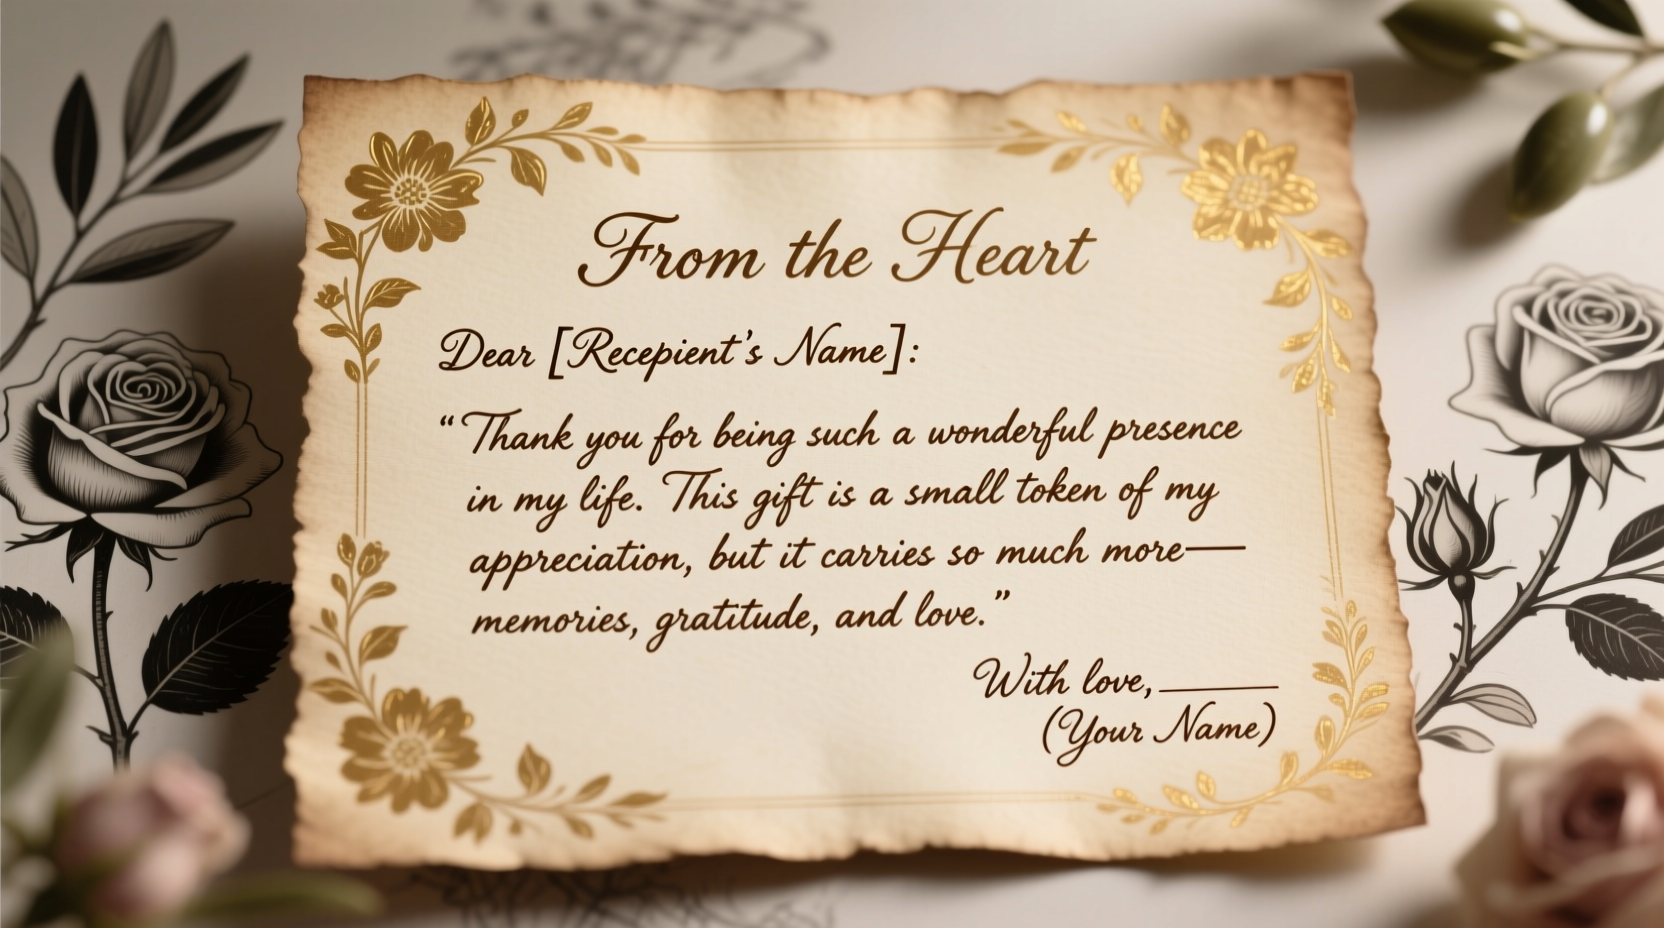 From the Heart
Dear [Recepient's Name]:
“Thank you for being such a wonderful presence
in my life. This gift is a small token of my
appreciation, but it carries so much more—
memories, gratitude, and love.”
With love, ______
(Your Name)